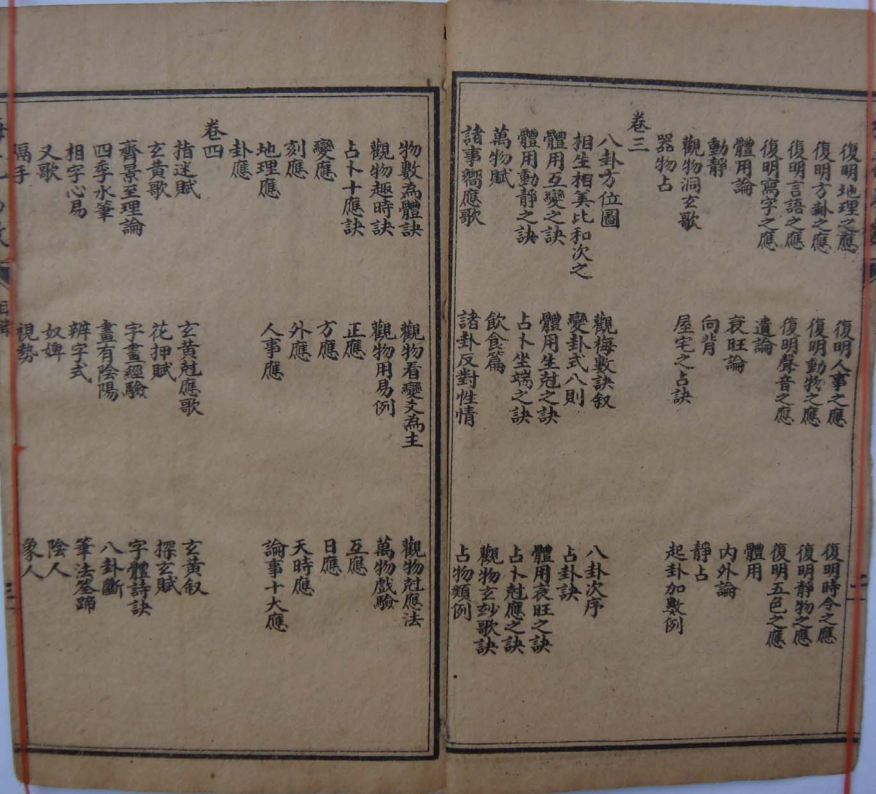 復明地理之應 復明人事之應 復明時令之應
復明方卦之應 復明動物之應 復明靜物之應
復明言語之應 復明聲音之應 復明五色之應
復明寫字之應 遺論 體用
體用論 衰旺論 內外論
動靜 向背 靜占
觀物洞玄歌 屋宅之占訣 起卦加數例
器物占
卷三
八卦方位圖 觀梅數訣叙 八卦次序
相生相美比和次之 變卦式八則 占卦訣
體用互變之訣 體用生尅之訣 體用衰旺之訣
體用動靜之訣 占卜坐端之訣 占卜尅應之訣
萬物賦 飲食篇 觀物玄玅歌訣
諸事嚮應歌 諸卦反對性情 占物類例
物數為體訣 觀物看變爻為主 觀物尅應法
觀物趣時訣 觀物用易例 萬物戲驗
占卜十應訣 正應 互應
變應 方應 日應
刻應 外應 天時應
地理應 人事應 論事十大應
卦應
卷四
指迷賦 玄黃尅應歌 玄黃叙
玄黃歌 花押賦 探玄賦
齊景至理論 字畫經驗 字體詩訣
四季水筆 畫有陰陽 八卦斷
相字心易 辨字式 筆法筌蹄
又歌 奴婢 陰人
隔手 視勢 象人